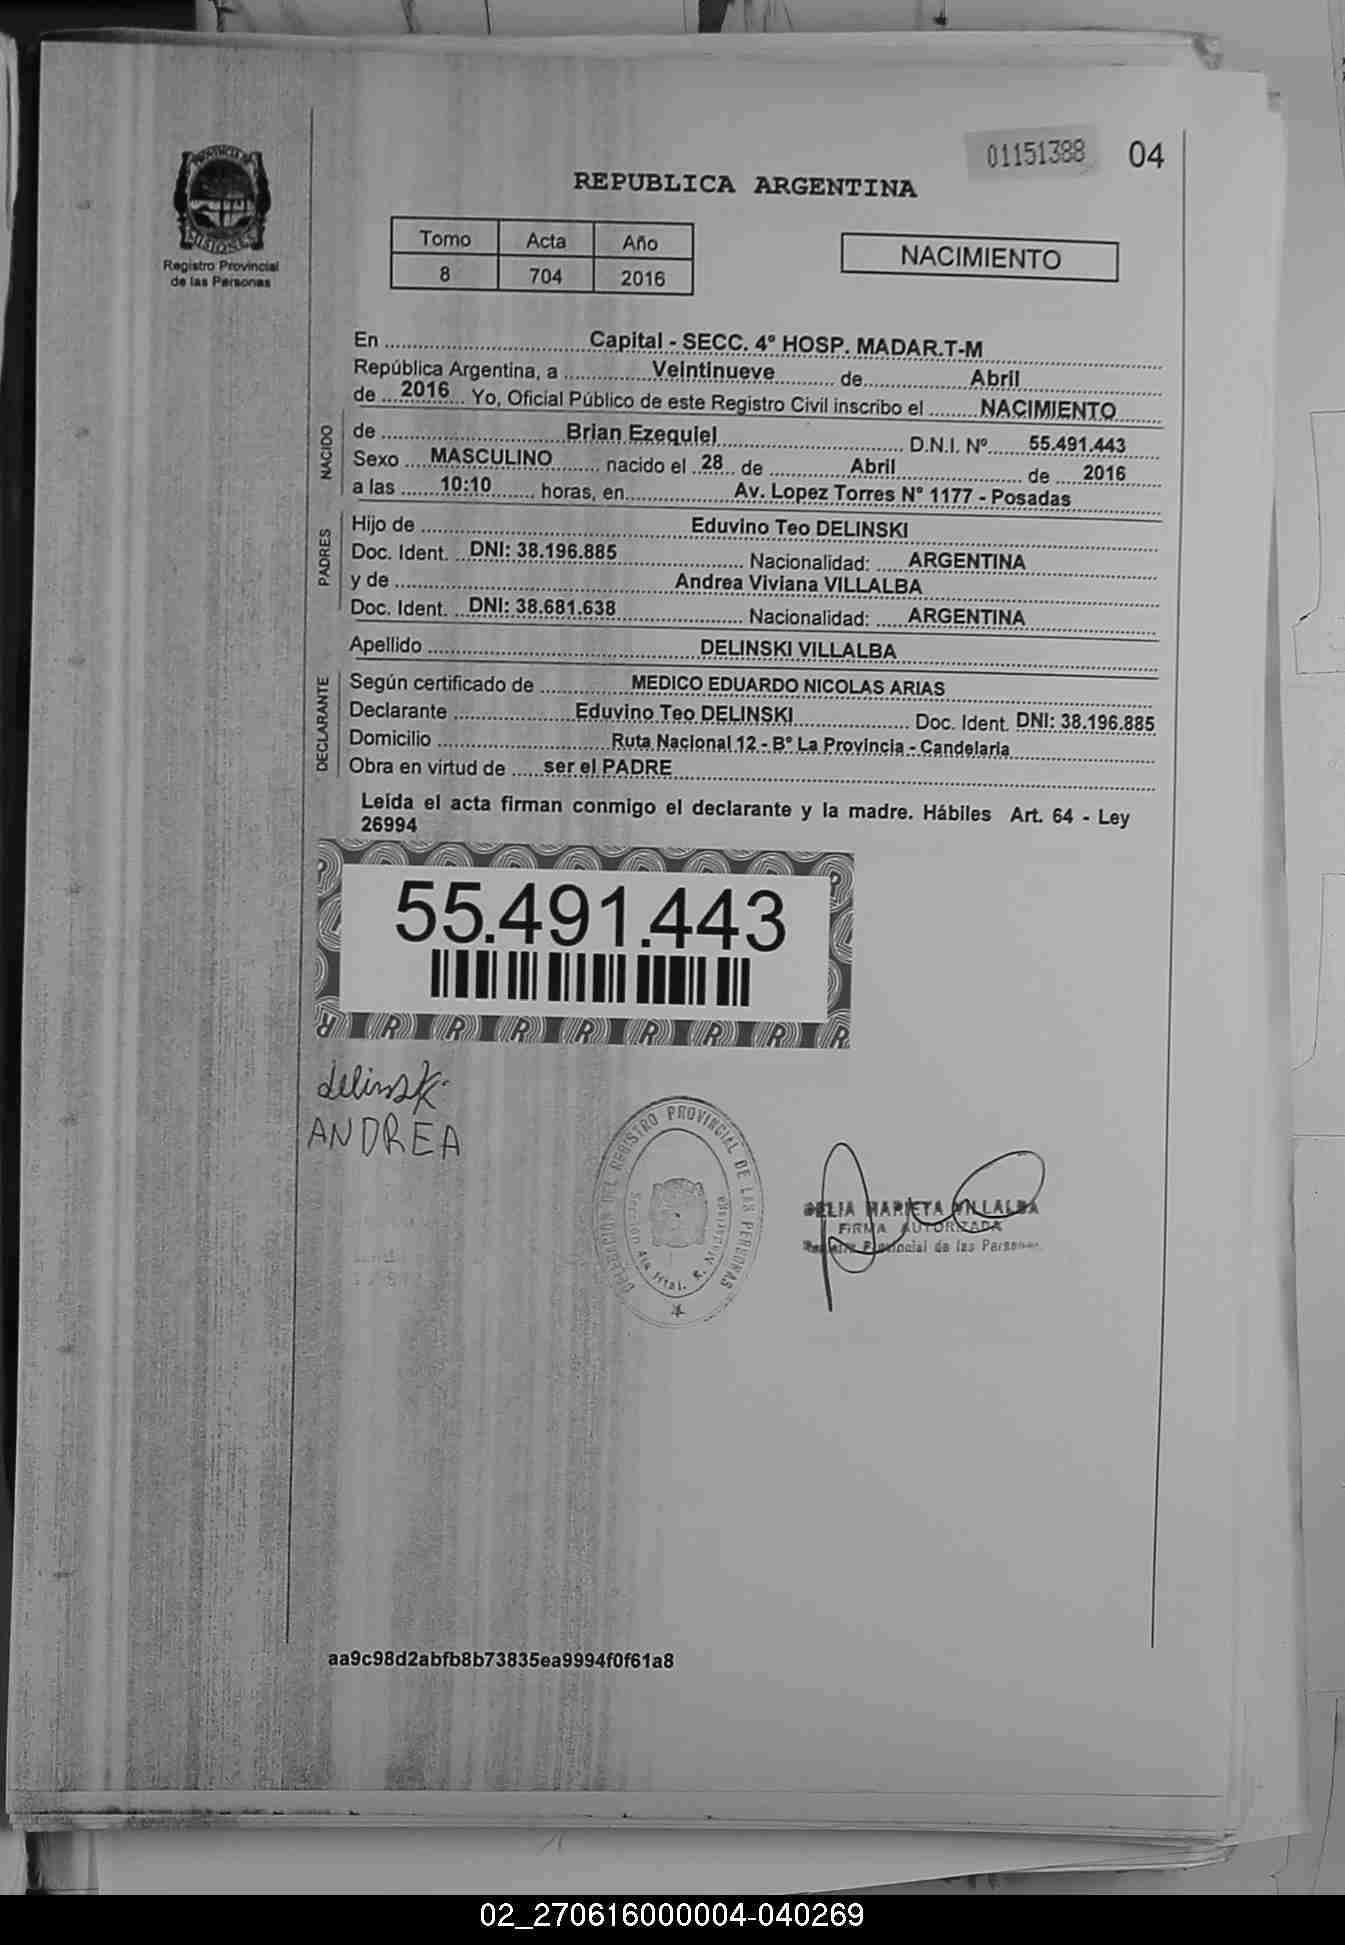 PROVINCIA DE
MISIONES
Registro Provincial
de las Personas
01151388 04
REPUBLICA ARGENTINA
Tomo Acta Año
8 704 2016
NACIMIENTO
En Capital - SECC. 4º HOSP. MADAR.T-M
República Argentina, a Veintinueve de Abril
de 2016 Yo, Oficial Público de este Registro Civil inscribo el NACIMIENTO
NACIDO
de Brian Ezequiel D.N.I. Nº 55.491.443
Sexo MASCULINO nacido el 28 de Abril de 2016
a las 10:10 horas, en Av. Lopez Torres Nº 1177 - Posadas
PADRES
Hijo de Eduvino Teo DELINSKI
Doc. Ident. DNI: 38.196.885 Nacionalidad: ARGENTINA
y de Andrea Viviana VILLALBA
Doc. Ident. DNI: 38.681.638 Nacionalidad: ARGENTINA
Apellido DELINSKI VILLALBA
DECLARANTE
Según certificado de MEDICO EDUARDO NICOLAS ARIAS
Declarante Eduvino Teo DELINSKI Doc. Ident. DNI: 38.196.885
Domicilio Ruta Nacional 12 - Bº La Provincia - Candelaria
Obra en virtud de ser el PADRE
Leída el acta firman conmigo el declarante y la madre. Hábiles Art. 64 - Ley
26994
55.491.443
delinski
ANDREA
DELEGACION DEL REGISTRO PROVINCIAL DE LAS PERSONAS
Sección 4ta Htal. R. Madariaga
DELIA MARIETA VILLALBA
FIRMA AUTORIZADA
Registro Provincial de las Personas
aa9c98d2abfb8b73835ea9994f0f61a8
02_270616000004-040269